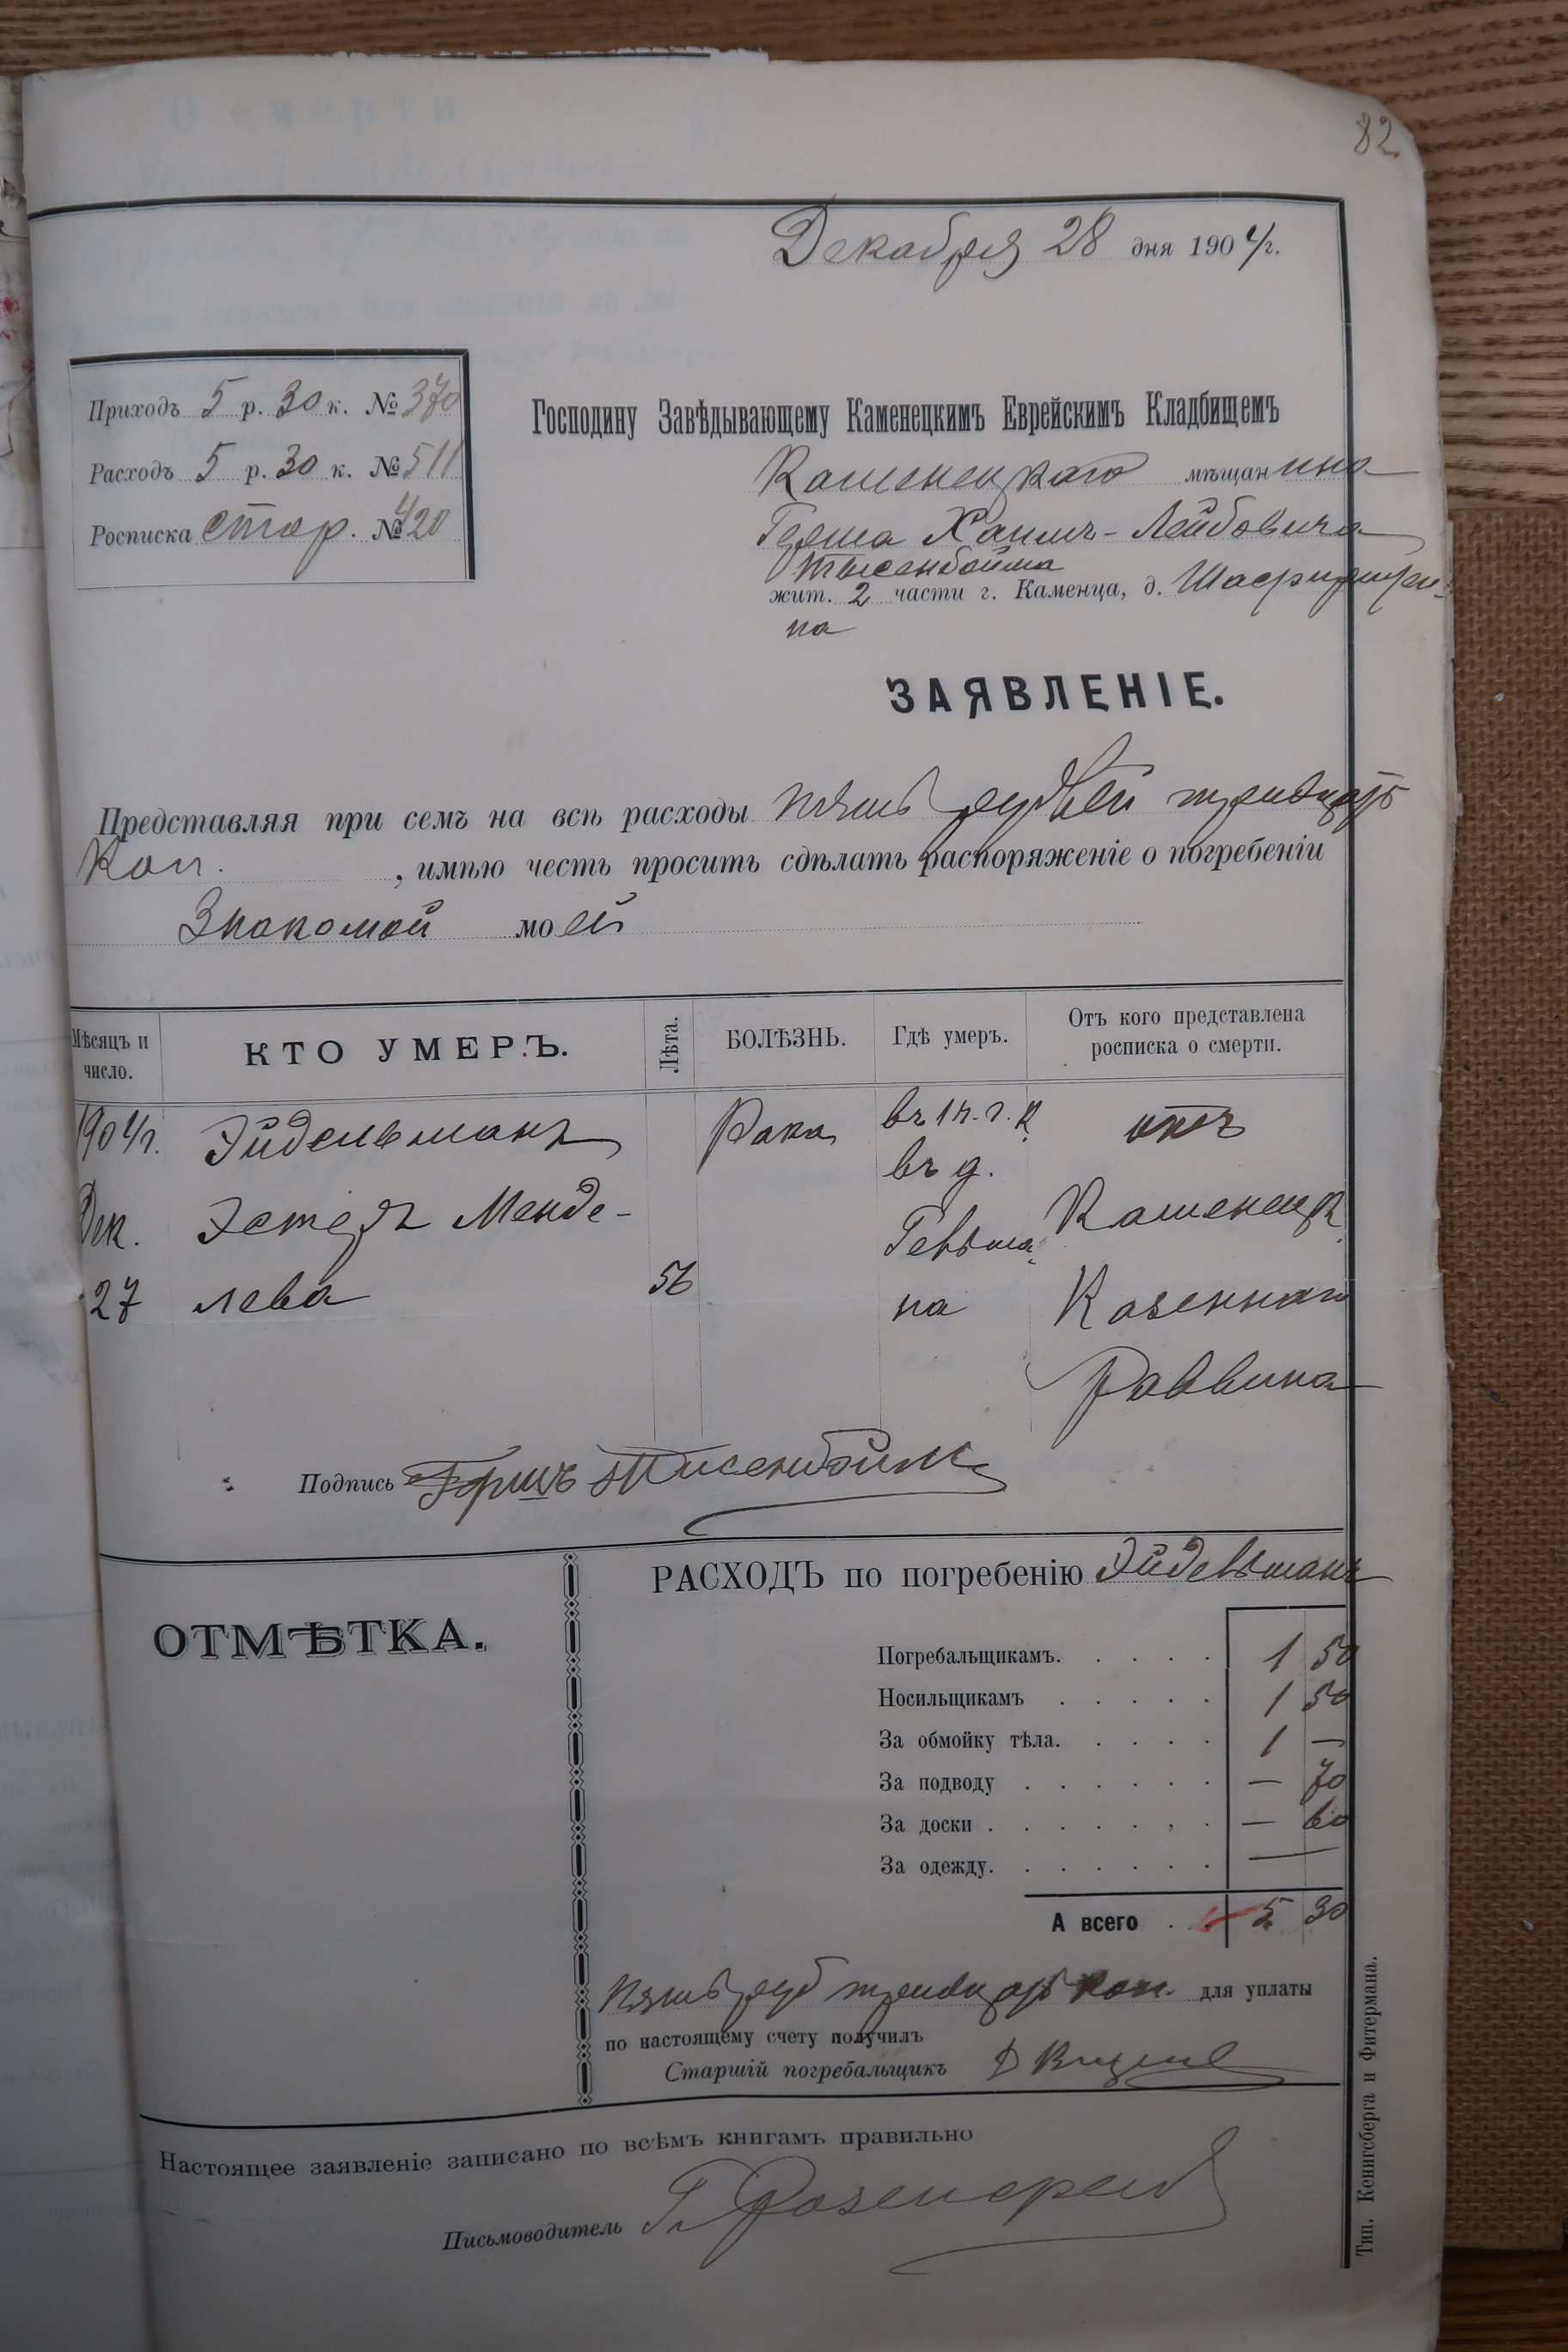 82
Декабря 28 дня 1904 г.
Приходъ 5 р. 30 к. № 370
Расходъ 5 р. 30 к. № 511
Росписка стар. № 420
Господину Завѣдывающему Каменецкимъ Еврейскимъ Кладбищемъ
Каменецкаго мѣщанина
Герша Хаимъ-Лейбовича
Тысенбойма
жит. 2 части г. Каменца, д.
на
ЗАЯВЛЕНІЕ.
Представляя при семъ на всѣ расходы пять рублей тридцать
коп. , имѣю честь просить сдѣлать распоряженіе о погребеніи
Знакомой моей
Мѣсяцъ и число.
КТО УМЕРЪ.
Лѣта.
БОЛѢЗНЬ.
Гдѣ умеръ.
Отъ кого представлена росписка о смерти.
1904 г. Эйдельманъ Рака въ 1 ч. г. К. отъ
въ д.
Дек. Эстеръ Менде- Гельма- Каменецк.
27 лева 56 на Казеннаго
Раввина
Подпись Гершъ Тисенбоймъ
ОТМѢТКА.
РАСХОДЪ по погребенію Эйдельманъ
Погребальщикамъ. . . . . 1 50
Носильщикамъ . . . . . 1 50
За обмойку тѣла. . . . . 1 —
За подводу . . . . . . — 70
За доски . . . . . , . — 60
За одежду. . . . . . . —
А всего . 5 30
Пять руб тридцать коп. для уплаты
по настоящему счету получилъ
Старшій погребальщикъ Д
Настоящее заявленіе записано по всѣмъ книгамъ правильно
Письмоводитель Г.
Тип. Кенигсберга и Фитермана.